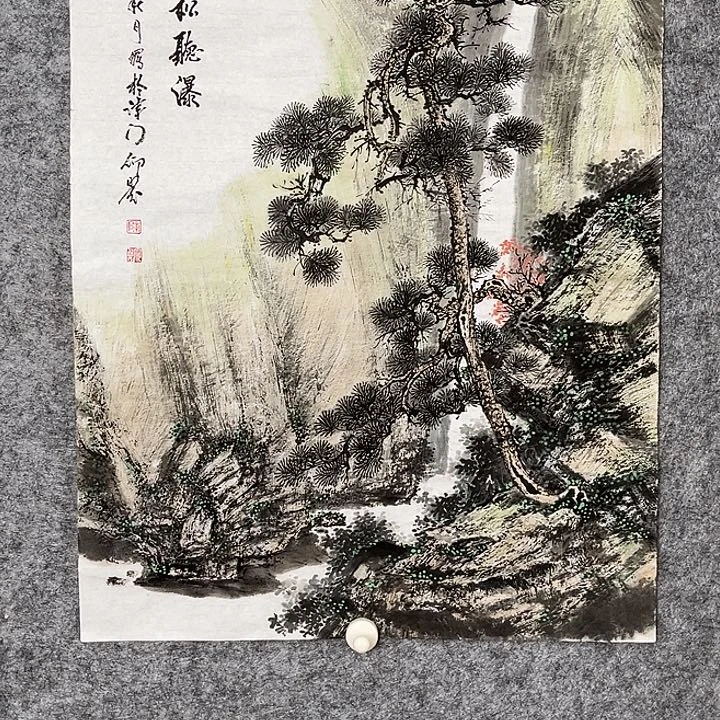 松聽瀑
秋月寫於津门